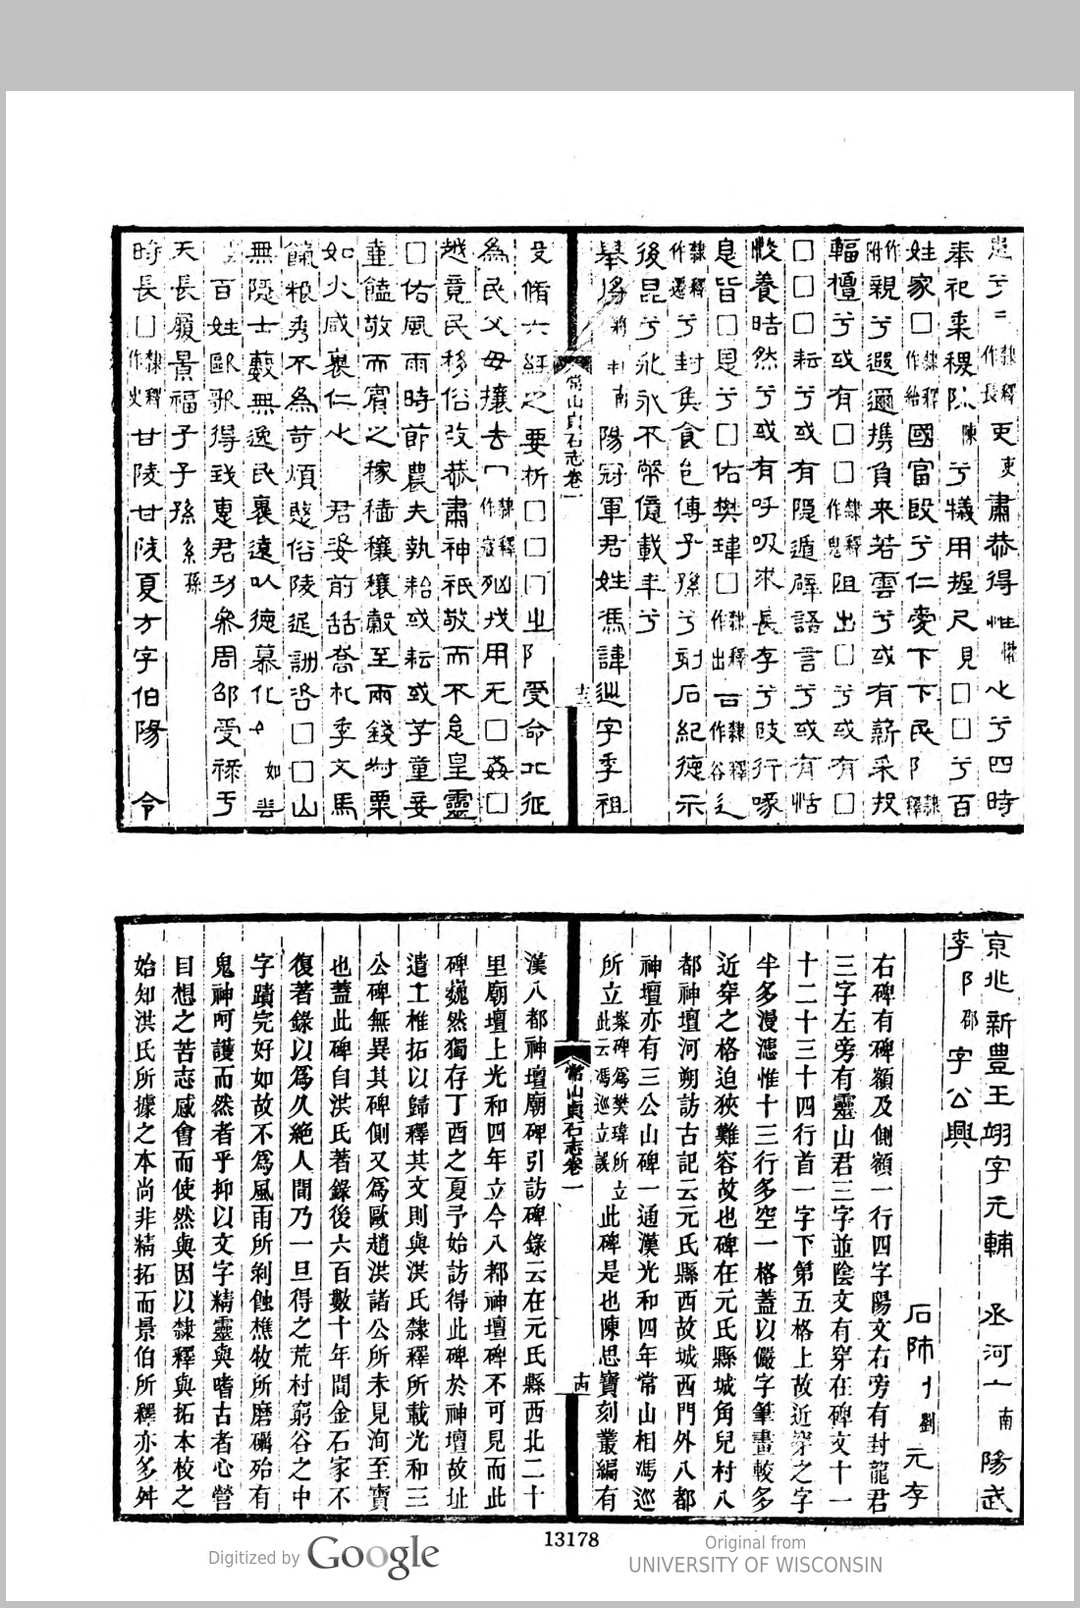 奉祀黍稷陳兮犧用握尺見□□兮百
姓家□國富殷兮仁愛下下民
親兮遐邇攜負來若雲兮或有薪采投
輻檀兮或有□□阻出□兮或有□
□□□耘兮或有隱遁辟語言兮或有恬
惔養晧然兮或有呼吸求長李兮跂行喙
息皆□恩兮□佑樊瑋□
兮封矦食邑傳子孫兮刻石紀德示
後昆兮永永不幣億載年兮
南陽冠軍君姓馮諱巡字季祖
常山貞石志卷一
十三
脩六經之要析□□受命北征
為民父母攘去 殀戎用无□姦□
越竟民移俗改恭肅神祇敬而不怠皇靈
□佑風雨時節農夫執耜或耘或芓童妾
壺饁敬而賓之稼穡穰穰穀至兩錢
如火咸裹仁 君姿前喆喬札季文馬
餙粮秀不為苛煩愍俗陵遲訓咨□□山
無隱士藪無逸民襄遠以德慕化如
百姓歐歌得我惠君功參周邵受祿于
天長履景福子子孫孫
時長□隸釋作史甘陵甘陵夏方字伯陽 令
京兆新豊王翊字元輔 丞河南陽武
李郡字公興
石師劉元存
右碑有碑額及側額一行四字陽文右旁有封龍君
三字左旁有靈山君三字並陰文有穿在碑文十一
十二十三十四行首一字下第五格上故近穿之字
半多漫漶惟十三行多空一格蓋以儼字筆畫較多
近穿之格迫狹難容故也碑在元氏縣城角兒村八
都神壇河朔訪古記云元氏縣西故城西門外八都
神壇亦有三公山碑一通漢光和四年常山相馮巡
所立案碑為樊瑋所立此云馮巡立誤此碑是也陳思寶刻叢編有
常山貞石志卷一
十四
漢八都神壇廟碑引訪碑錄云在元氏縣西北二十
里廟壇上光和四年立今八都神壇碑不可見而此
碑巍然獨存丁酉之夏予始訪得此碑於神壇故址
遣工椎拓以歸釋其文則與洪氏隸釋所載光和三
公碑無異其碑側又為歐趙洪諸公所未見洵至寶
也蓋此碑自洪氏著錄後六百數十年間金石家不
復著錄以為久絕人間乃一旦得之荒村窮谷之中
字蹟完好如故不為風雨所剝蝕樵牧所磨礪殆有
鬼神呵護而然者乎抑以文字精靈與嗜古者心營
目想之苦志感會而使然與因以隸釋與拓本校之
始知洪氏所據之本尚非精拓而景伯所釋亦多舛
13178
Digitized by Google
Original from
UNIVERSITY OF WISCONSIN